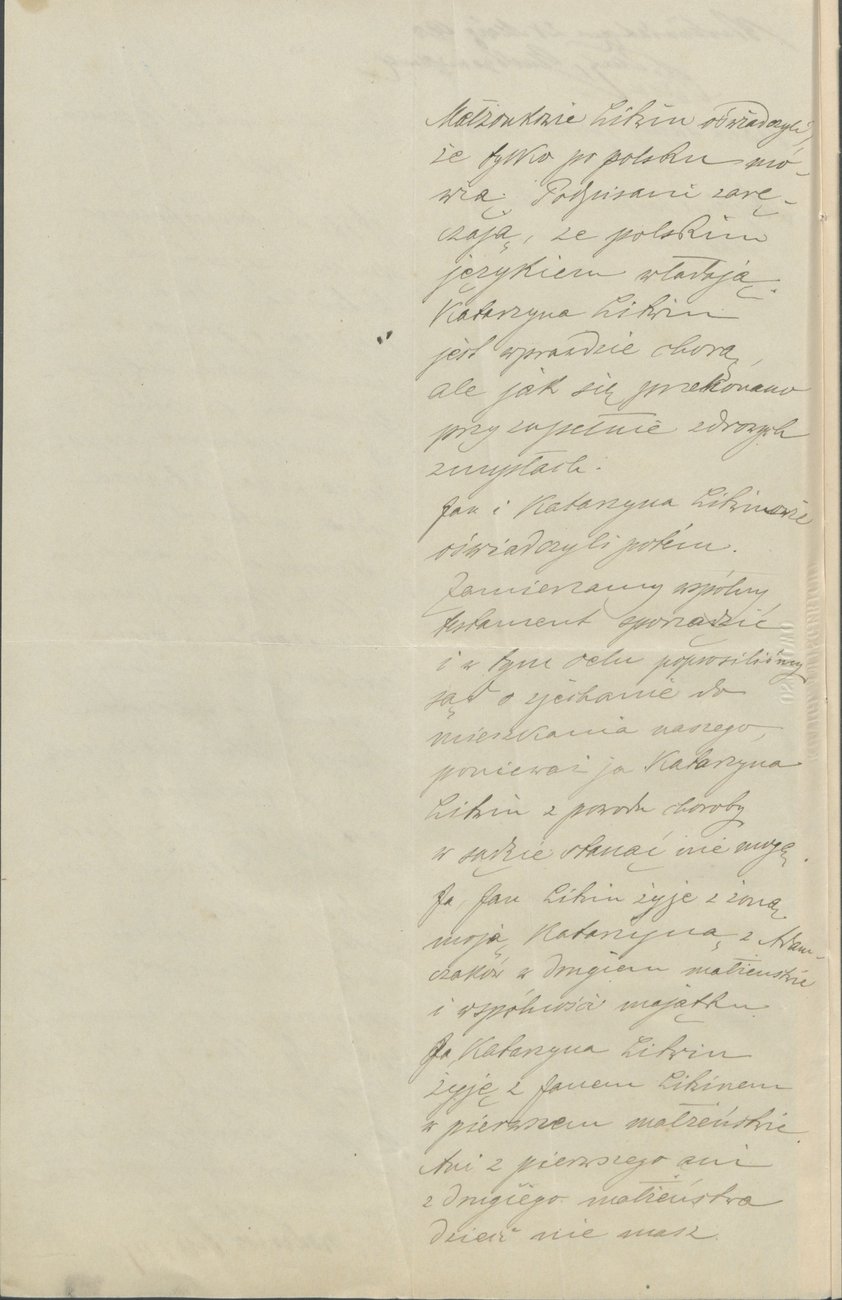 Małżonkowie Litwin oświadczyli,
że tylko po polsku mó-
wią. Podpisani zarę-
czają, że polskim
językiem władają.
Katarzyna Litwin
jest wprawdzie chorą,
ale jak się przekonano
przy zupełnie zdrowych
zmysłach.
Jan i Katarzyna Litwinowie
oświadczyli potém.
Zamierzamy wspólny
testament sporządzić
i w tym celu poprosiliśmy
sąd o zjechanie do
mieszkania naszego,
ponieważ ja Katarzyna
Litwin z powodu choroby
w sądzie stanąć nie mogę.
Ja Jan Litwin żyję z żoną
moją Katarzyną z Adam-
czaków w drugiem małżeńskie
i wspólności majątku.
Ja Katarzyna Litwin
żyję z Janem Litwinem
w pierwszem małżeństwie.
Ani z pierwszego ani
z drugiego małżeństwa
dzieci nie masz.